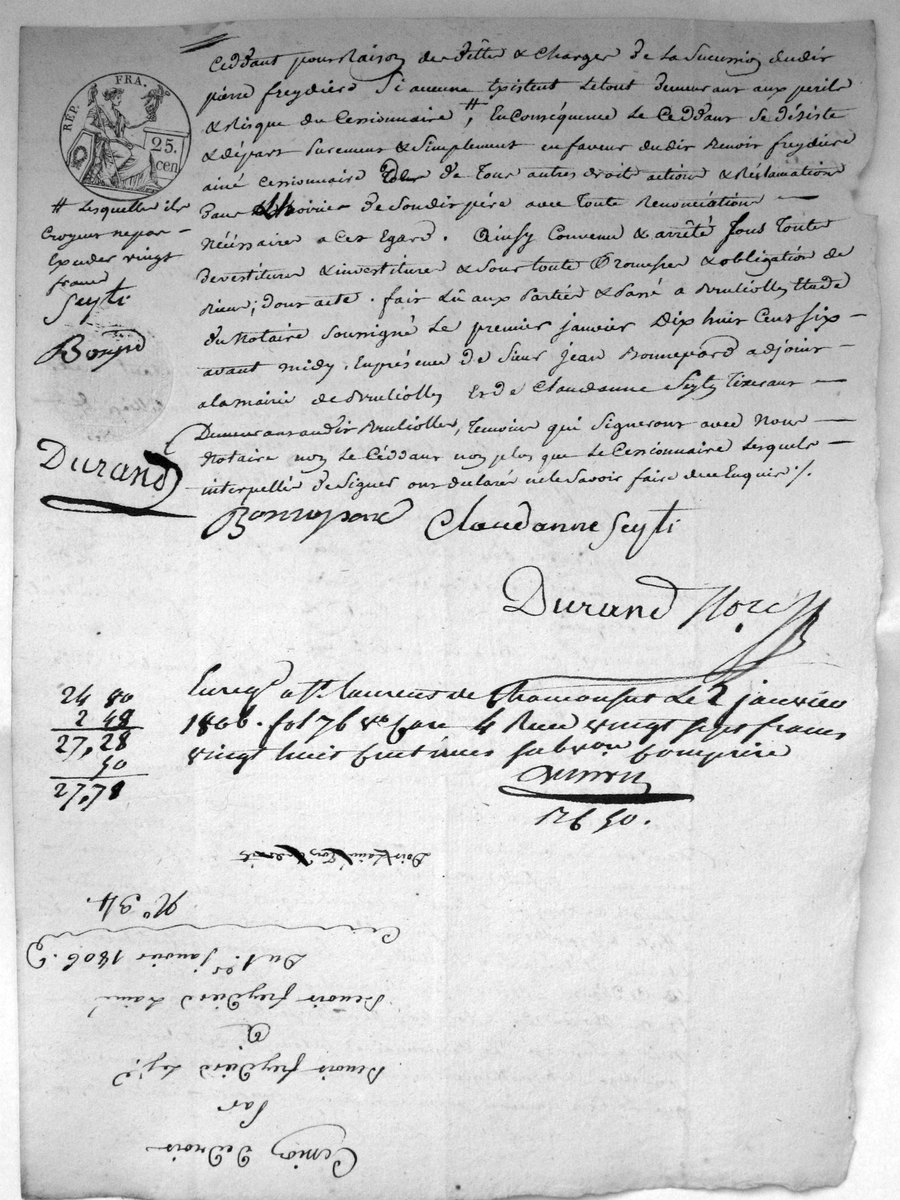 RÉP. FRA.
25. cen
Ceddant pour Raison des dettes & Charges de La Sucession dudit
pierre freydiere Si aucune Existent Le tout Demeurant aux perils
& Risque du Cessionnaire #, En Conséquence Le Ceddant Se désiste
& départ purement & Simplement en faveur dudit Benoit freydiere
ainé Cessionnaire de Tous autres droits actions & Réclamations
dans de Sondit père avec Toute Renonciation —
Nécéssaire a Cet Egard. Ainsy Convenu & arrêté Sous Toute
devestiture & investiture & Sous toute Promesses & obligation de
Rieu; dont acte. fait Lû aux Parties & Passé a Brullioles Etude
du Notaire Soussigné Le premier janvier Dix huit Cent Six —
avant midy. En présence de Sieur jean Bonnepard adjoint
a la mairie de Brullioles Et de Claudanne Seyti Tixerant —
Demeurant audit Brullioles, Temoins qui Signeront avec Nous
Notaire non Le Ceddant non plus que Le Cessionnaire Lesquels
interpellés de Signer ont declaré ne le Savoir faire de ce Enquis /.
# Lesquelles ils
Croyent ne pas —
Exceder vingt
francs
Seyti
Durand
Claudanne Seyti
Durand Nore
Enreg. a St. laurent de Chamousset Le 2 janvier
1806. fol 76 vo Case 4 Recu vingt sept francs
vingt huit Centimes subvon Comprise
24 80
2 48
27, 28
50
27, 78
Cession de Droits
Par
Benoit freydiere Leje.
A
Benoit freydiere Lainé
Du 1.er janvier 1806.
No. 34.